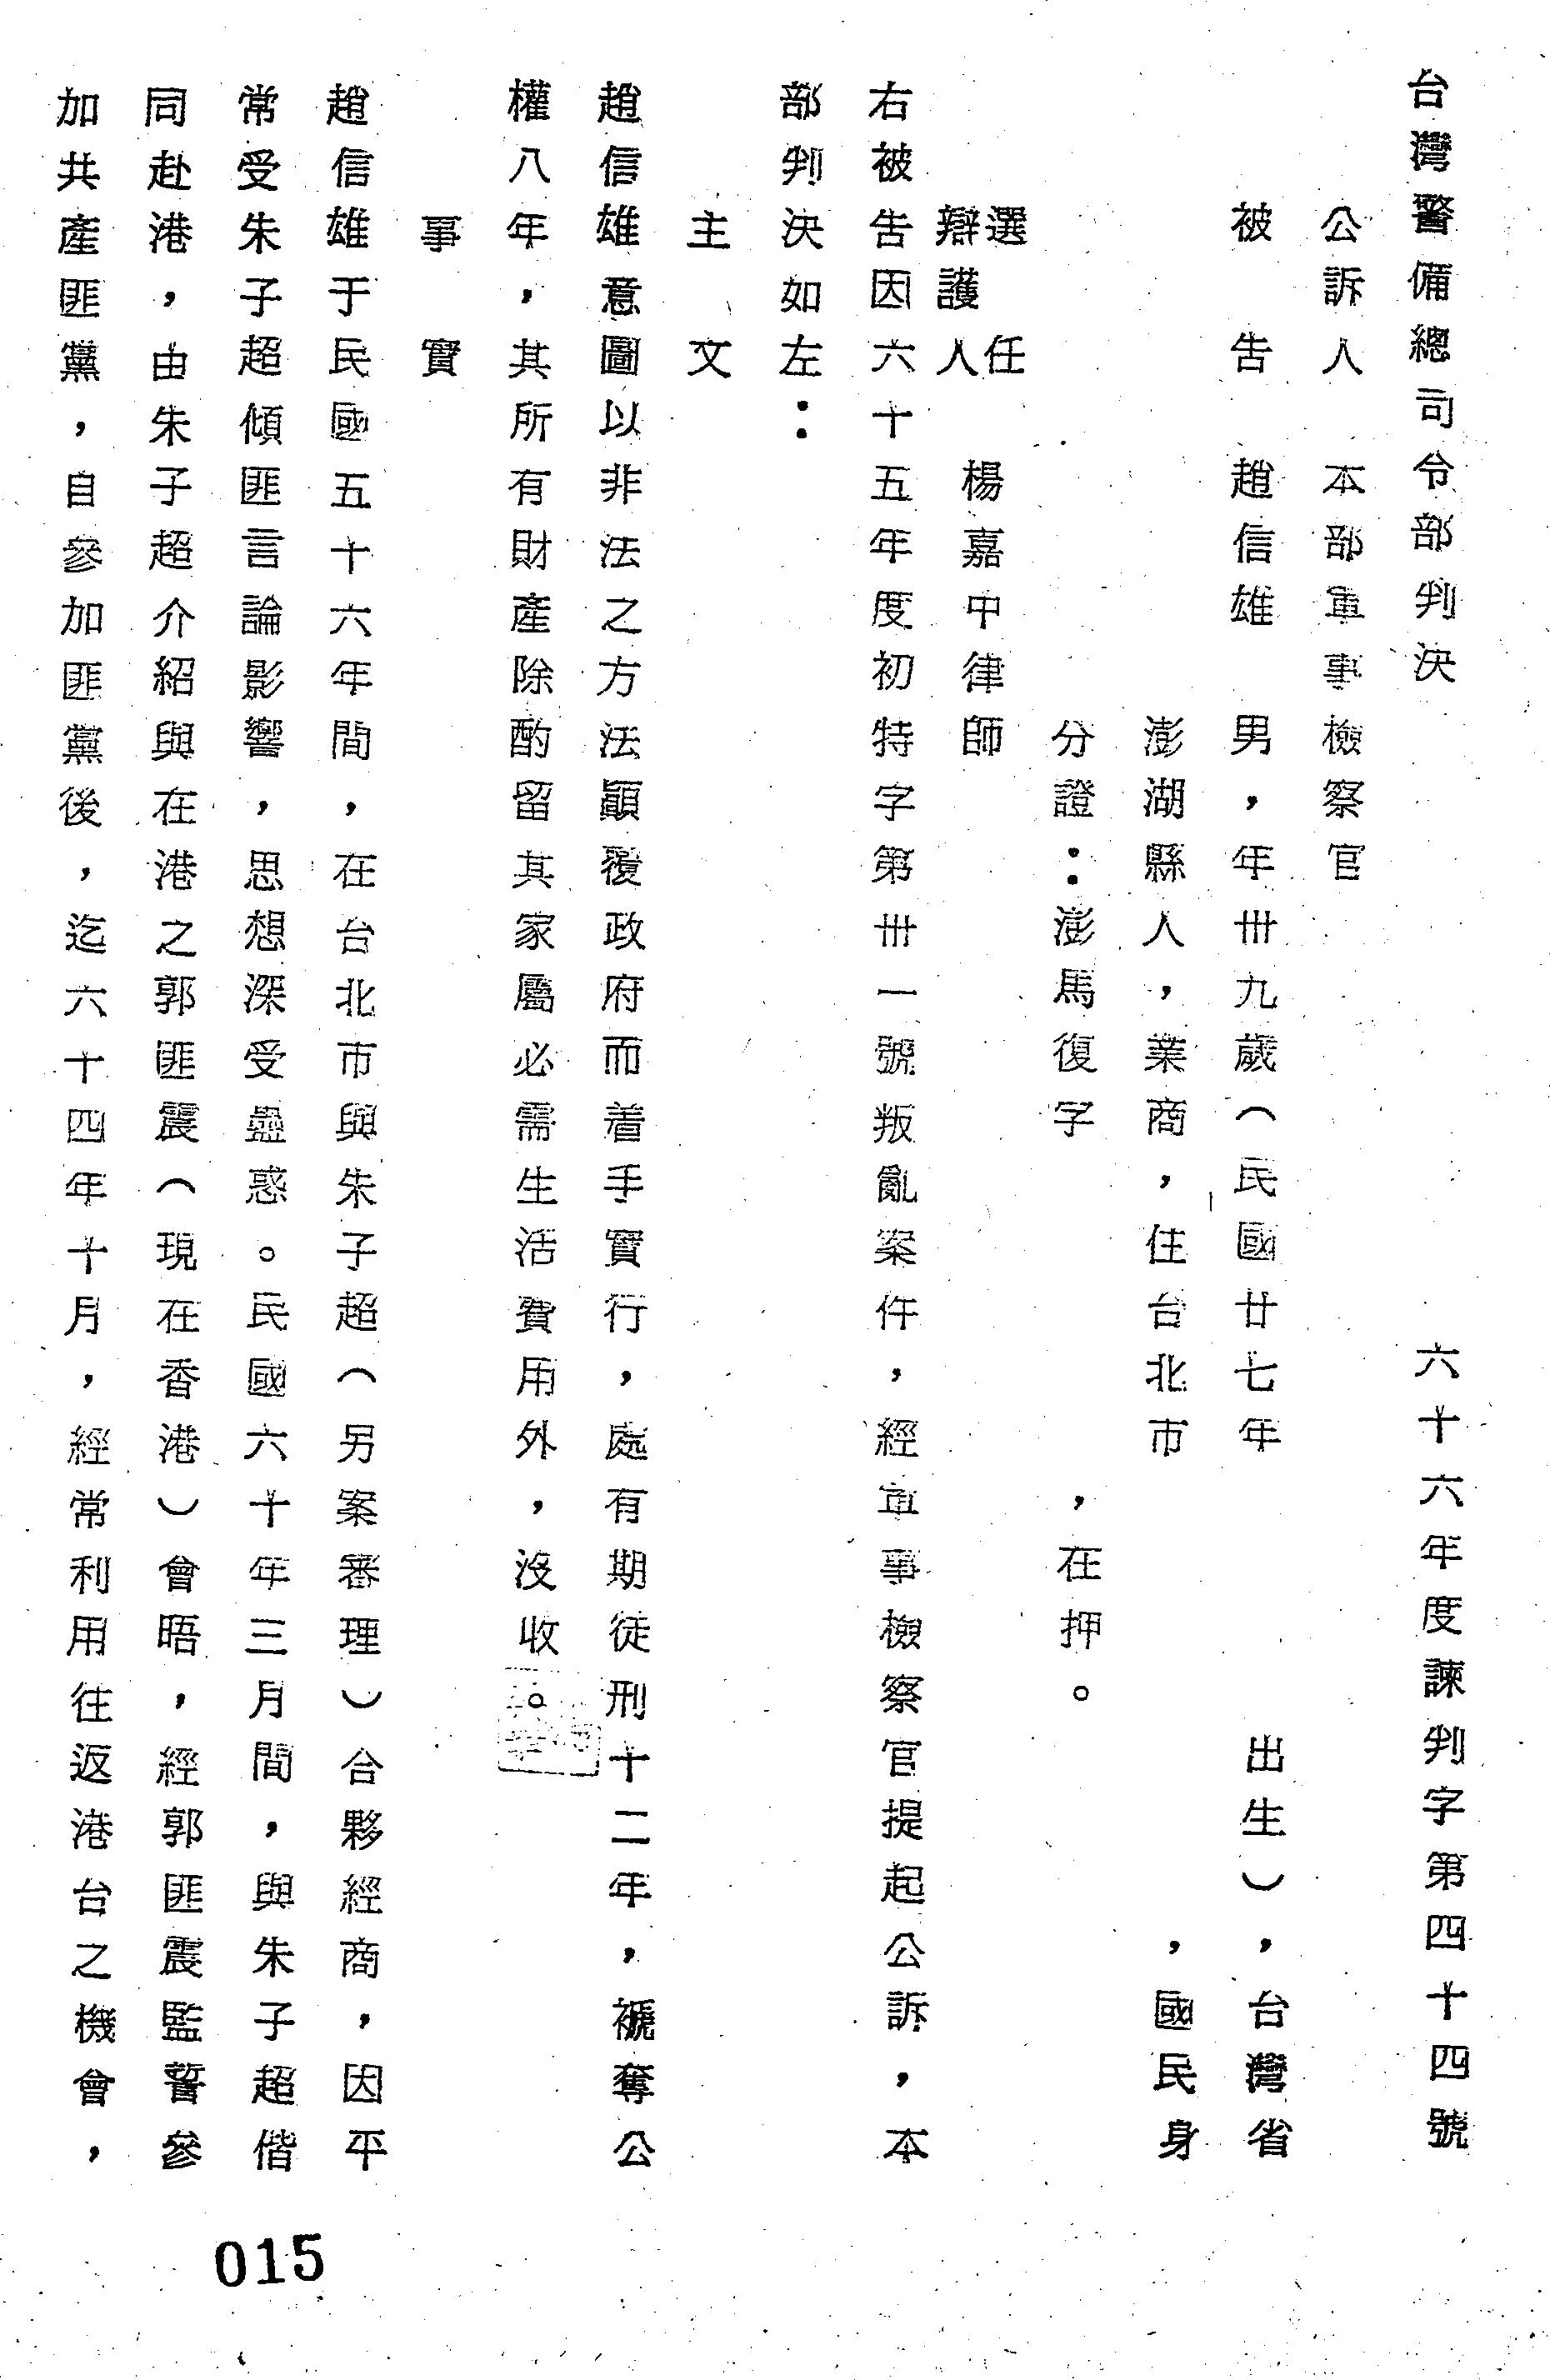 台灣警備總司令部判決　六十六年度諫判字第四十四號
公訴人　本部軍事檢察官
被告　趙信雄　男，年卅九歲（民國廿七年　出生），台灣省
澎湖縣人，業商，住台北市　，國民身
分證：澎馬復字　，在押。
選任
辯護人　楊嘉中律師
右被告因六十五年度初特字第卅一號叛亂案件，經軍事檢察官提起公訴，本
部判決如左：
主文
趙信雄意圖以非法之方法顛覆政府而着手實行，處有期徒刑十二年，褫奪公
權八年，其所有財產除酌留其家屬必需生活費用外，沒收。
事實
趙信雄于民國五十六年間，在台北市與朱子超（另案審理）合夥經商，因平
常受朱子超傾匪言論影響，思想深受蠱惑。民國六十年三月間，與朱子超偕
同赴港，由朱子超介紹與在港之郭匪震（現在香港）會晤，經郭匪震監誓參
加共產匪黨，自參加匪黨後，迄六十四年十月，經常利用往返港台之機會，
015